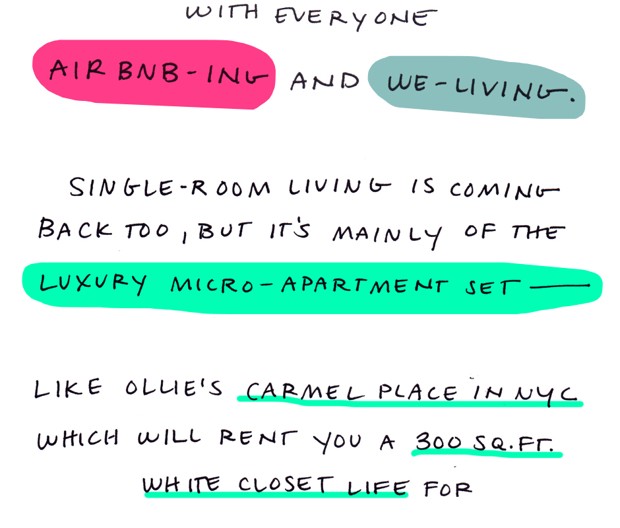 WITH EVERYONE
AIRBNB-ING AND WE-LIVING.
SINGLE-ROOM LIVING IS COMING
BACK TOO, BUT IT'S MAINLY OF THE
LUXURY MICRO-APARTMENT SET —
LIKE OLLIE'S CARMEL PLACE IN NYC
WHICH WILL RENT YOU A 300 SQ.FT.
WHITE CLOSET LIFE FOR